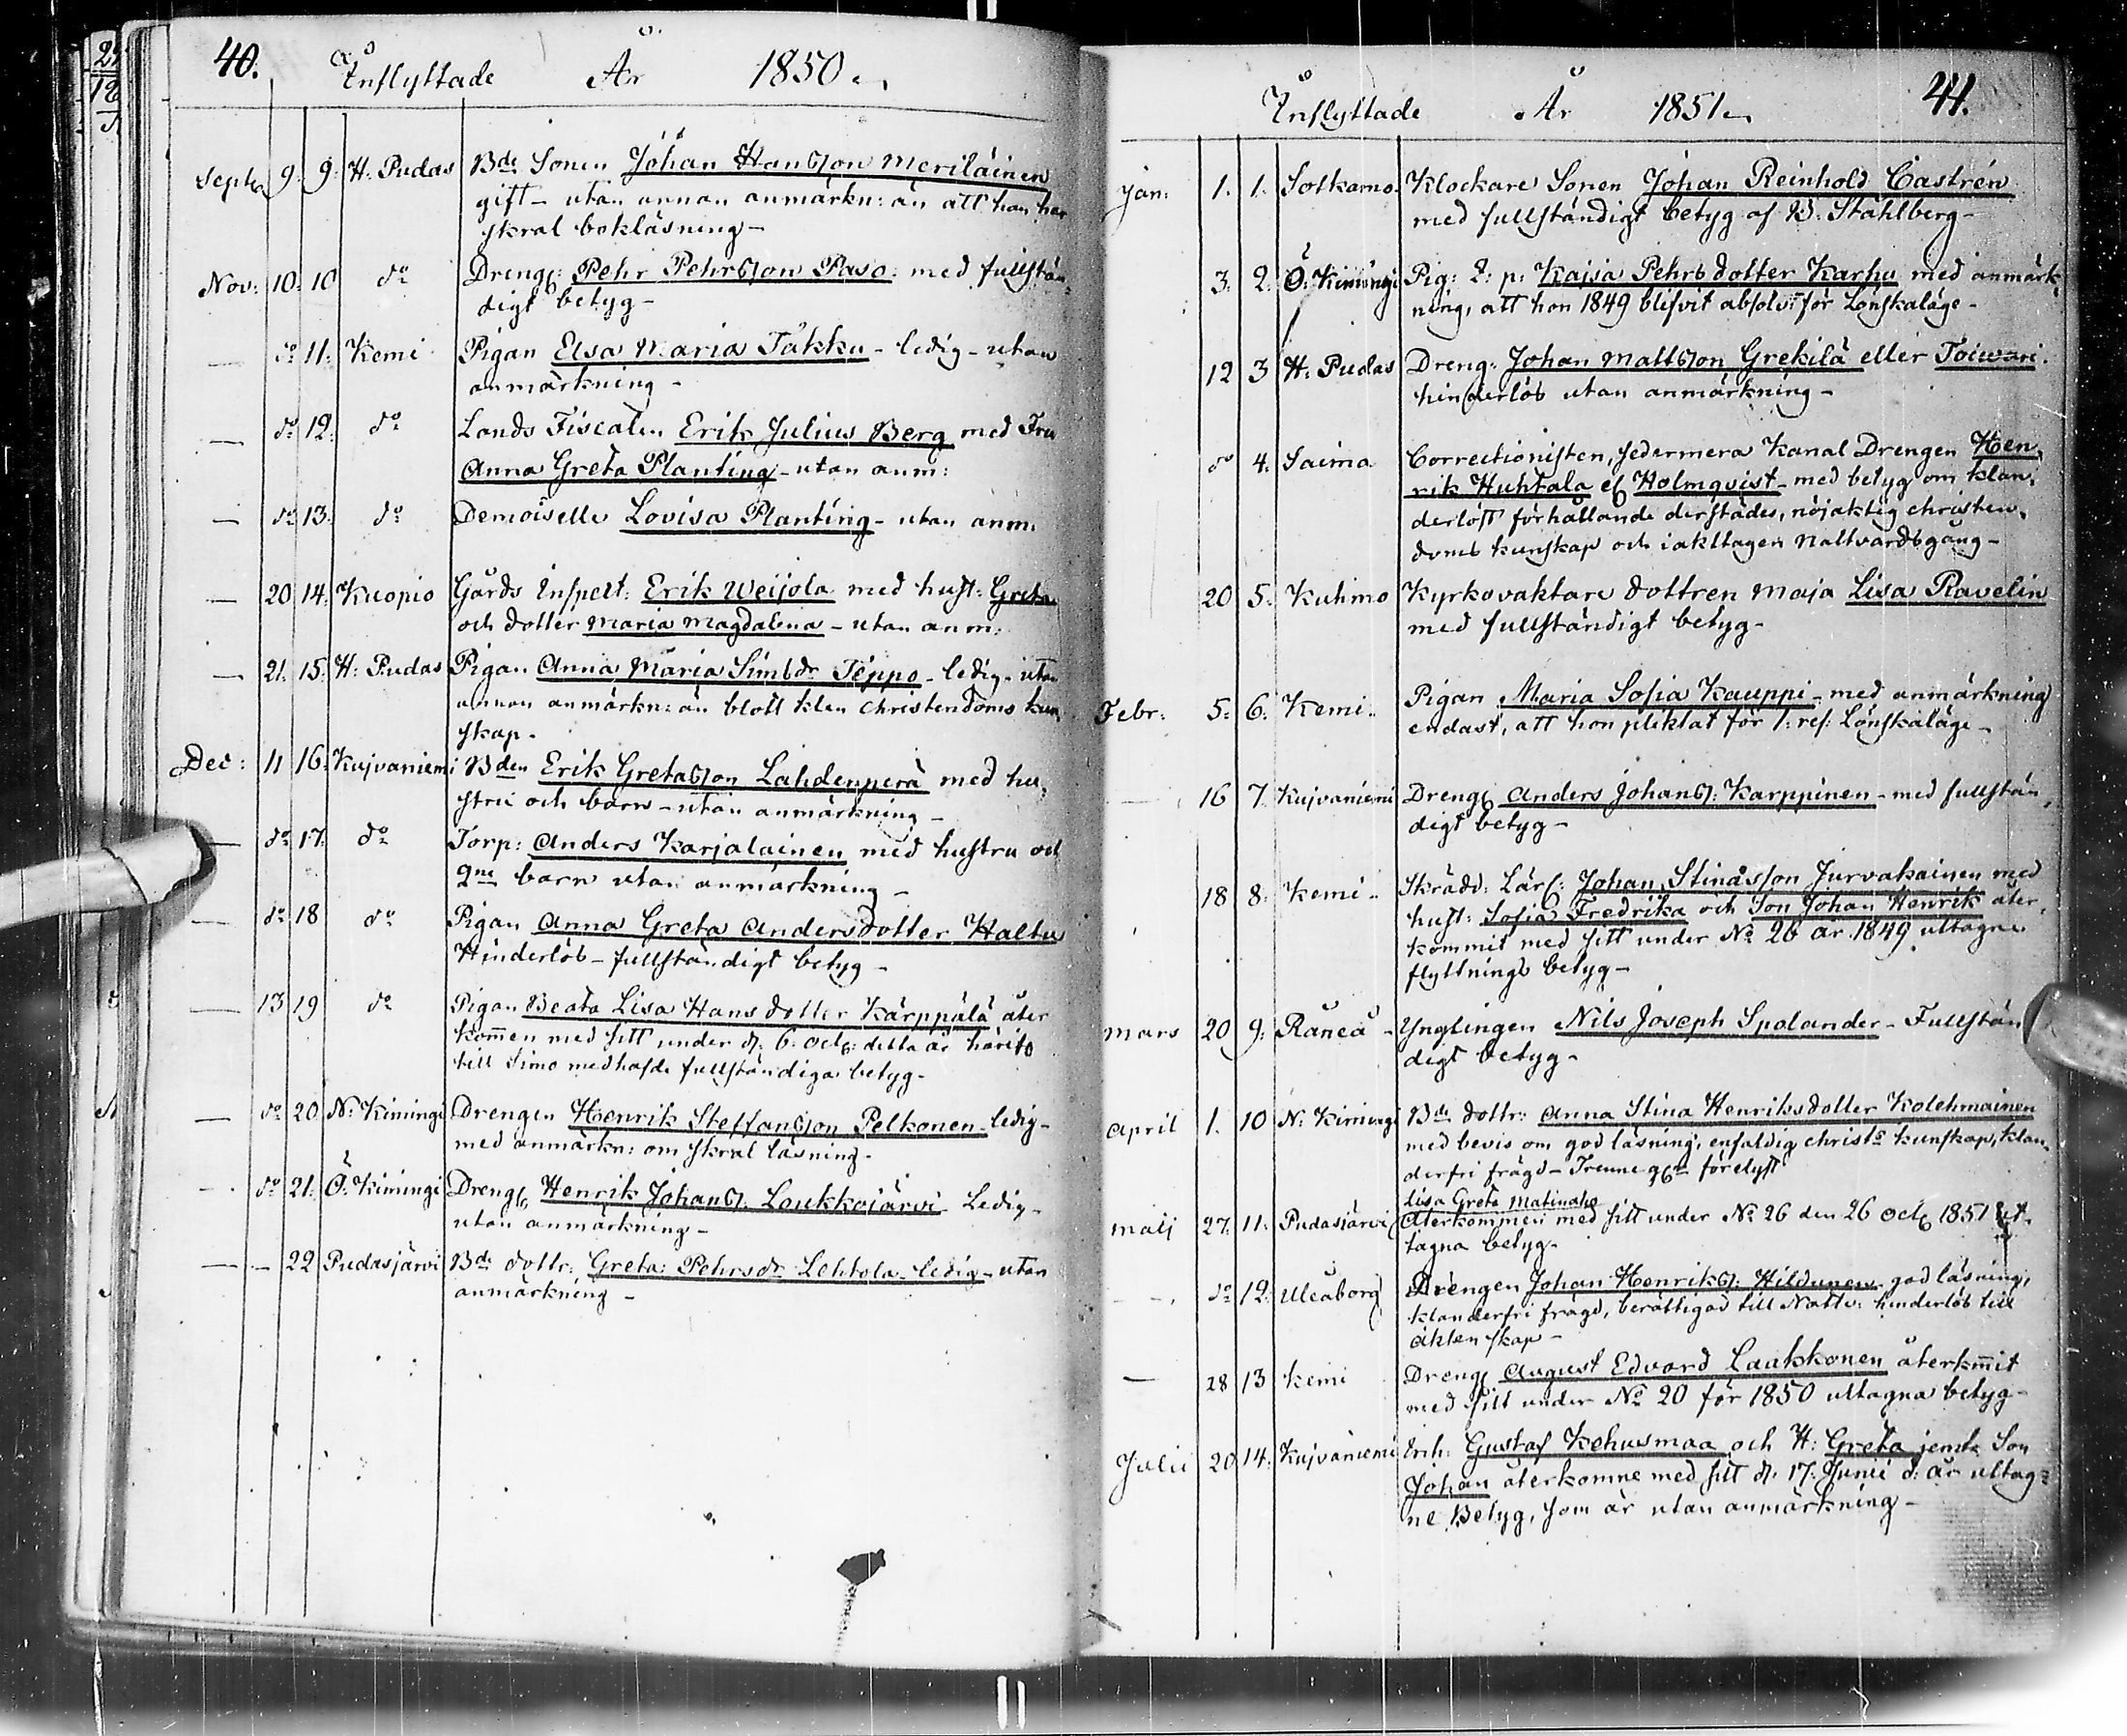 40.
Inflyttade År 1850.
Septb 9. 9. H. Pudas Bde Sonen Johan Hansson Meriläinen
gift - utan annan anmärkn: än att han har
skral bokläsning -
Nov: 10. 10 do Dreng: Pehr Pehrsson Paso: med fullstän-
digt betyg -
— do 11. Kemi Pigan Elsa Maria Takku - ledig - utan
anmärkning -
— do 12. do Lands Fiscalen Erik Julius Berg med Fru
Anna Greta Planting - utan anm:
— do 13. do Demoiselle Lovisa Planting - utan anm.
— 20 14. Kuopio Gårds Inspect: Erik Weijola med hust: Greta
och dotter Maria Magdalena - utan anm:
— 21. 15. H: Pudas Pigan Anna Maria Simsdr Teppo - ledig - utan
annan anmärkn: än blott klen christendoms kun-
skap -
Dec: 11 16. Kujvaniemi Bden Erik Gretasson Lahdenperä med hu-
stru och barn - utan anmärkning -
— do 17. do Torp: Anders Karjalainen med hustru och
2ne barn utan anmärkning -
— do 18 do Pigan Anna Greta Andersdotter Haltu
Hinderlös - fullständigt betyg -
— 13 19 do Pigan Beata Lisa Hansdotter Kärppälä åter
kommen med sitt under d. 6. octb: detta år härifr
till Simo medhafde fullständiga betyg -
— do 20 N: Kimingi Drengen Henrik Steffansson Pelkonen - ledig -
med anmärkn: om skral läsning -
— do 21. Ö: Kimingi Dreng Henrik Johanss. Loukkojärvi - Ledig -
utan anmärkning -
— — 22 Pudasjärvi Bde dottr: Greta: Pehrsdr Lehtola - ledig - utan
anmärkning -
41.
Inflyttade År 1851.
Jan: 1. 1. Sotkamo Klockare Sonen Johan Reinhold Castrén
med fullständigt betyg af Ståhlberg -
3. 2. Ö: Kimingi Pig: Kajsa Pehrsdotter Karhu med anmärk-
ning, att hon 1849 blifvit absolv: för Lönskaläge -
12 3 H: Pudas Dreng: Johan Mattsson Grekilä eller Toiwari
hinderlös utan anmärkning -
do 4. Saima Correctionisten, sedermera Kanal Drengen Hen-
rik Huhtala el Holmqvist - med betyg om klan-
derlöst förhållande derstädes, nöjaktig christen-
doms kunskap och iakttagen Nattvardsgång -
20 5. Kuhmo Kyrkovaktare dottren Maja Lisa Ravelin
med fullständigt betyg -
Febr: 5. 6. Kemi Pigan Maria Sofia Kauppi - med anmärkning
endast, att hon pliktat för 1: res: Lönskaläge -
— 16 7. Kujvaniemi Dreng Anders Johans: Karppinen - med fullstän-
digt betyg -
18 8. Kemi Skrädd: Lärl: Johan Stinasson Jurvakainen med
hust: Sofia Fredrika och Son Johan Henrik åter-
kommit med sitt under No 26 år 1849 uttagne
flyttnings betyg -
Mars 20 9. Råneå Ynglingen Nils Joseph Spolander - Fullstän
digt betyg -
April 1. 10 N: Kimingi Bde dottr: Anna Stina Henriksdotter Kolehmainen
med bevis om god läsning, enfaldig christs kunskap, klan-
derfri frägd - Trenne ggr förelyst
Lisa Greta Matinaho
Maij 27. 11. Pudasjärvi Återkommen med sitt under No 26 den 26 octb 1851 ut-
tagna betyg -
— do 12. Uleåborg Drengen Johan Henriks: Hildunen - god läsning,
klanderfri frägd, berättigad till Nattv: hinderlös till
äktenskap -
— 28 13 Kemi Dreng August Edvard Laakkonen återkmit
med sitt under No 20 för 1850 uttagna betyg -
Julii 20 14. Kujvaniemi Inh: Gustaf Kehusmaa och H: Greta jemte Son
Johan återkomne med sitt d. 17: Junii d: år uttag-
ne Betyg, som är utan anmärkning -